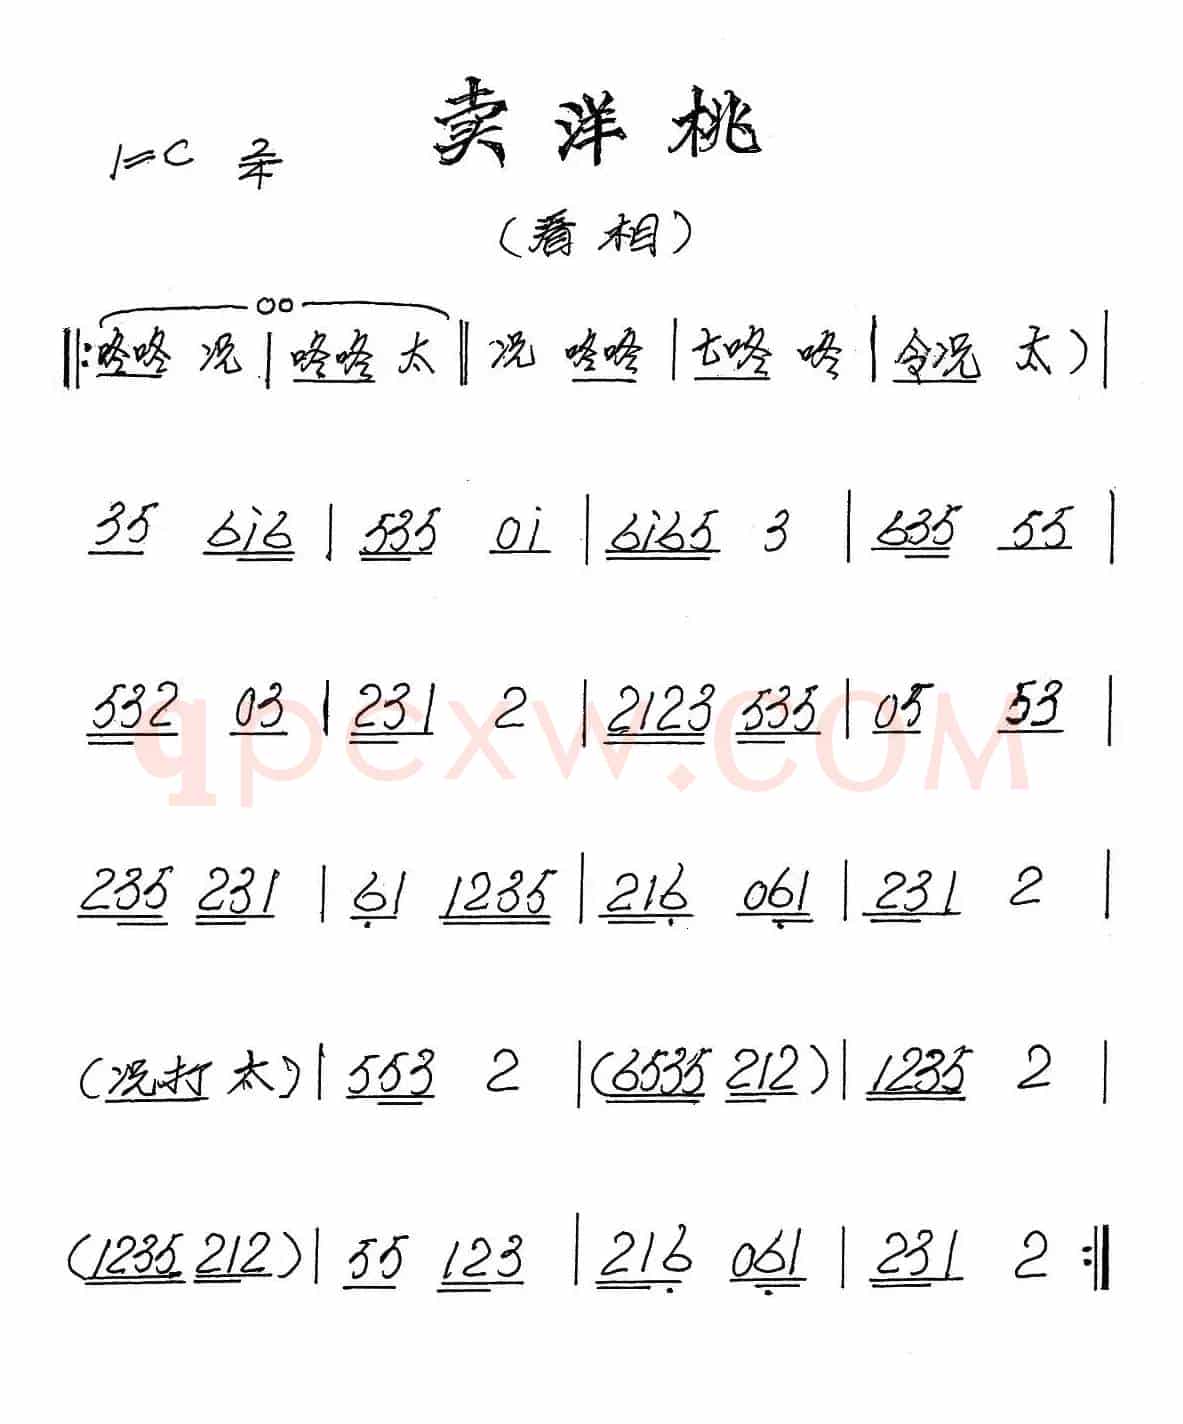 卖洋桃
1=C 2/4
(看相)
‖: 咚咚 况 | 咚咚 太 ‖ 况 咚咚 | 七咚 咚 | 令况 太) |
35 6i6 | 535 0i | 6i65 3 | 635 55 |
532 03 | 231 2 | 2123 535 | 05 53 |
qpcxw.COM
235 231 | 6̣1 1235 | 216̣ 06̣1 | 231 2 |
(况打 太) | 553 2 | (6535 212) | 1235 2 |
(1235 212) | 55 123 | 216̣ 06̣1 | 231 2 :‖